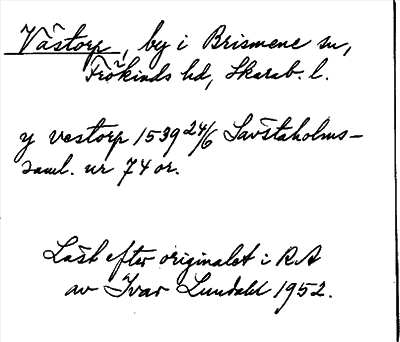 Västorp, by i Brismene sn,
Frökinds hd, Skarab. l.
y vestorp 1539 24/6 Sävstaholms-
saml. nr 74 or.
Läst efter originalet i RA
av Ivar Lundahl 1952.